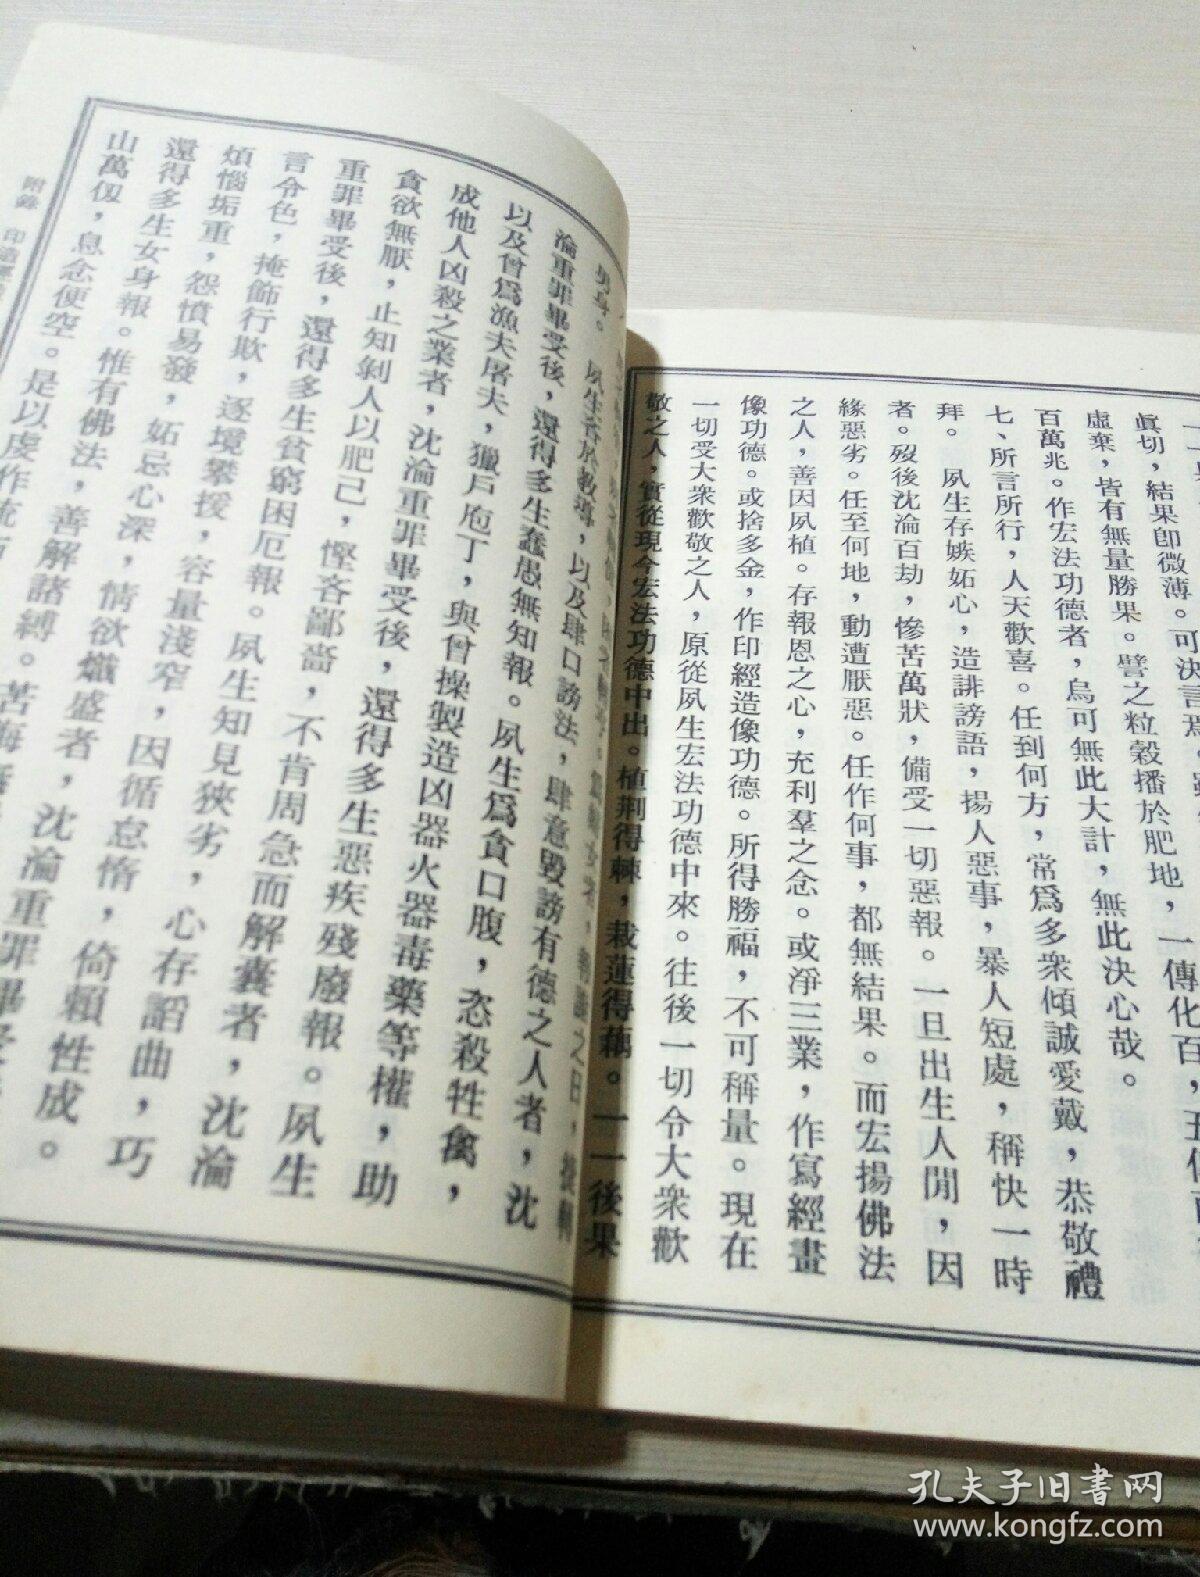 眞切，結果卽微薄。可決言焉。
虛棄，皆有無量勝果。譬之粒穀播於肥地，一傳化百，
百萬兆。作宏法功德者，烏可無此大計，無此決心哉。
七、所言所行，人天歡喜。任到何方，常爲多衆傾誠愛戴，恭敬禮
拜。　夙生存嫉妬心，造誹謗語，揚人惡事，暴人短處，稱快一時
者。歿後沈淪百劫，慘苦萬狀，備受一切惡報。一旦出生人間，因
緣惡劣。任至何地，動遭厭惡。任作何事，都無結果。而宏揚佛法
之人，善因夙植。存報恩之心，充利羣之念。或淨三業，作寫經畫
像功德。或捨多金，作印經造像功德。所得勝福，不可稱量。現在
一切受大衆歡敬之人，原從夙生宏法功德中來。往後一切令大衆歡
敬之人，實從現今宏法功德中出。植荆得棘，栽蓮得藕。一一後果
男身。　夙生吝於教導，以及肆口謗法，肆意毀謗有德之人者，沈
淪重罪畢受後，還得多生蠢愚無知報。夙生爲貪口腹，恣殺牲禽，
以及曾爲漁夫屠夫，獵戶庖丁，與曾操製造凶器火器毒藥等權，助
成他人凶殺之業者，沈淪重罪畢受後，還得多生惡疾殘廢報。夙生
貪欲無厭，止知剝人以肥己，慳吝鄙嗇，不肯周急而解囊者，沈淪
重罪畢受後，還得多生貧窮困厄報。夙生知見狹劣，心存諂曲，巧
言令色，掩飾行欺，逐境攀援，容量淺窄，因循怠惰，倚賴性成。
煩惱垢重，怨憤易發，妬忌心深，情欲熾盛者，沈淪重罪畢受
還得多生女身報。惟有佛法，善解諸縛。苦海
山萬仭，息念便空。是以虔作
附錄　印造
孔夫子旧书网
www.kongfz.com